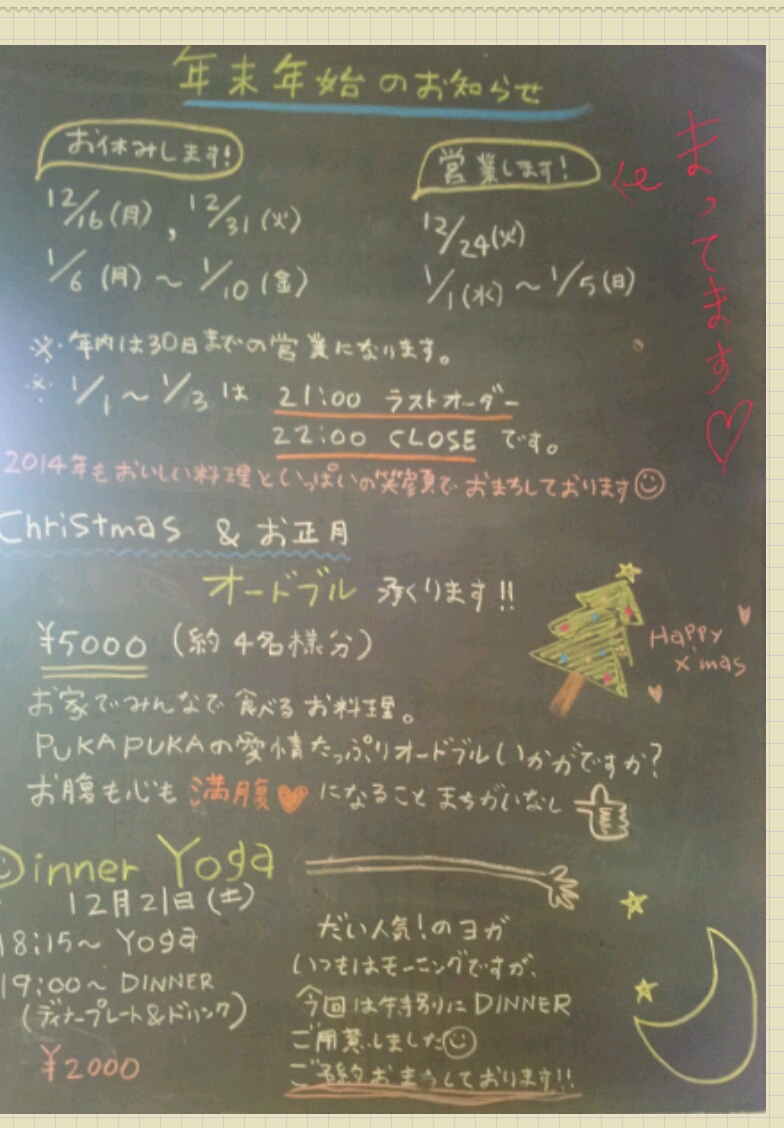 年末年始のお知らせ
お休みします!
12/16(月), 12/31(火)
1/6(月)～1/10(金)
営業します!
12/24(火)
1/1(水)～1/5(日)
まってます♡
※・年内は30日までの営業になります。
※ 1/1～1/3は 21:00 ラストオーダー
22:00 CLOSE です。
2014年もおいしい料理といっぱいの笑顔でおまちしております☺
Christmas & お正月
オードブル 承くります!!
¥5000 (約4名様分)
Happy
x'mas
お家でみんなで食べるお料理。
PUKAPUKAの愛情たっぷりオードブルいかがですか?
お腹も心も満腹♥になることまちがいなし
Dinner Yoga
12月21日(土)
18:15～ Yoga
19:00～ DINNER
(ディナープレート&ドリンク)
¥2000
だい人気!のヨガ
いつもはモーニングですが、
今回は特別にDINNER
ご用意しました☺
ご予約おまちしております!!